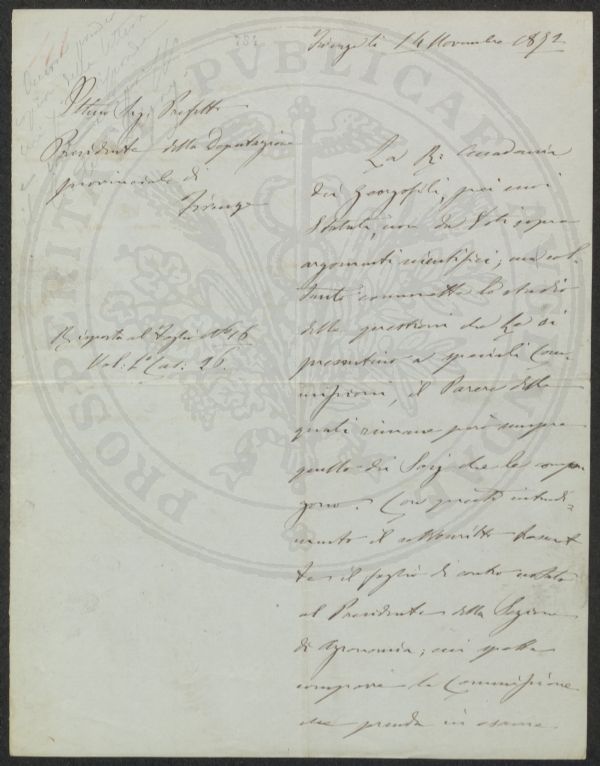 781
Firenze li 14 Novembre 1872
Sig. Prefetto
Presidente della Deputazione
provinciale di
Firenze
Risposta al Foglio N° 16
Cat: 26.
La R. Accademia
dei Georgofili, per i suoi
Statuti, non dà Voti sopra
argomenti scientifici; ma sol-
tanto commette lo studio
delle questioni che Le si
presentino a speciali Com-
missioni, il Parere delle
quali rimane però sempre
quello dei Soci che le compon-
gono. Con questo intendi-
mento il sottoscritto
il foglio di contro notato
al Presidente della Sezione
di Agronomia, cui spetta
comporre la Commissione
che prenda in esame
PROSPERITATI PUBLICAE AUGENDAE